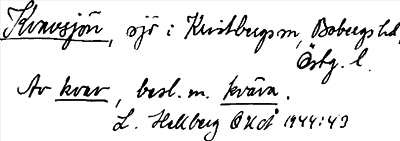 Kvavsjön, sjö i Kvistbergs m, Bobergs hd,
Östg. l.
Av kvav, besl. m. kväva.
L. Hellberg OKÅ 1944:43